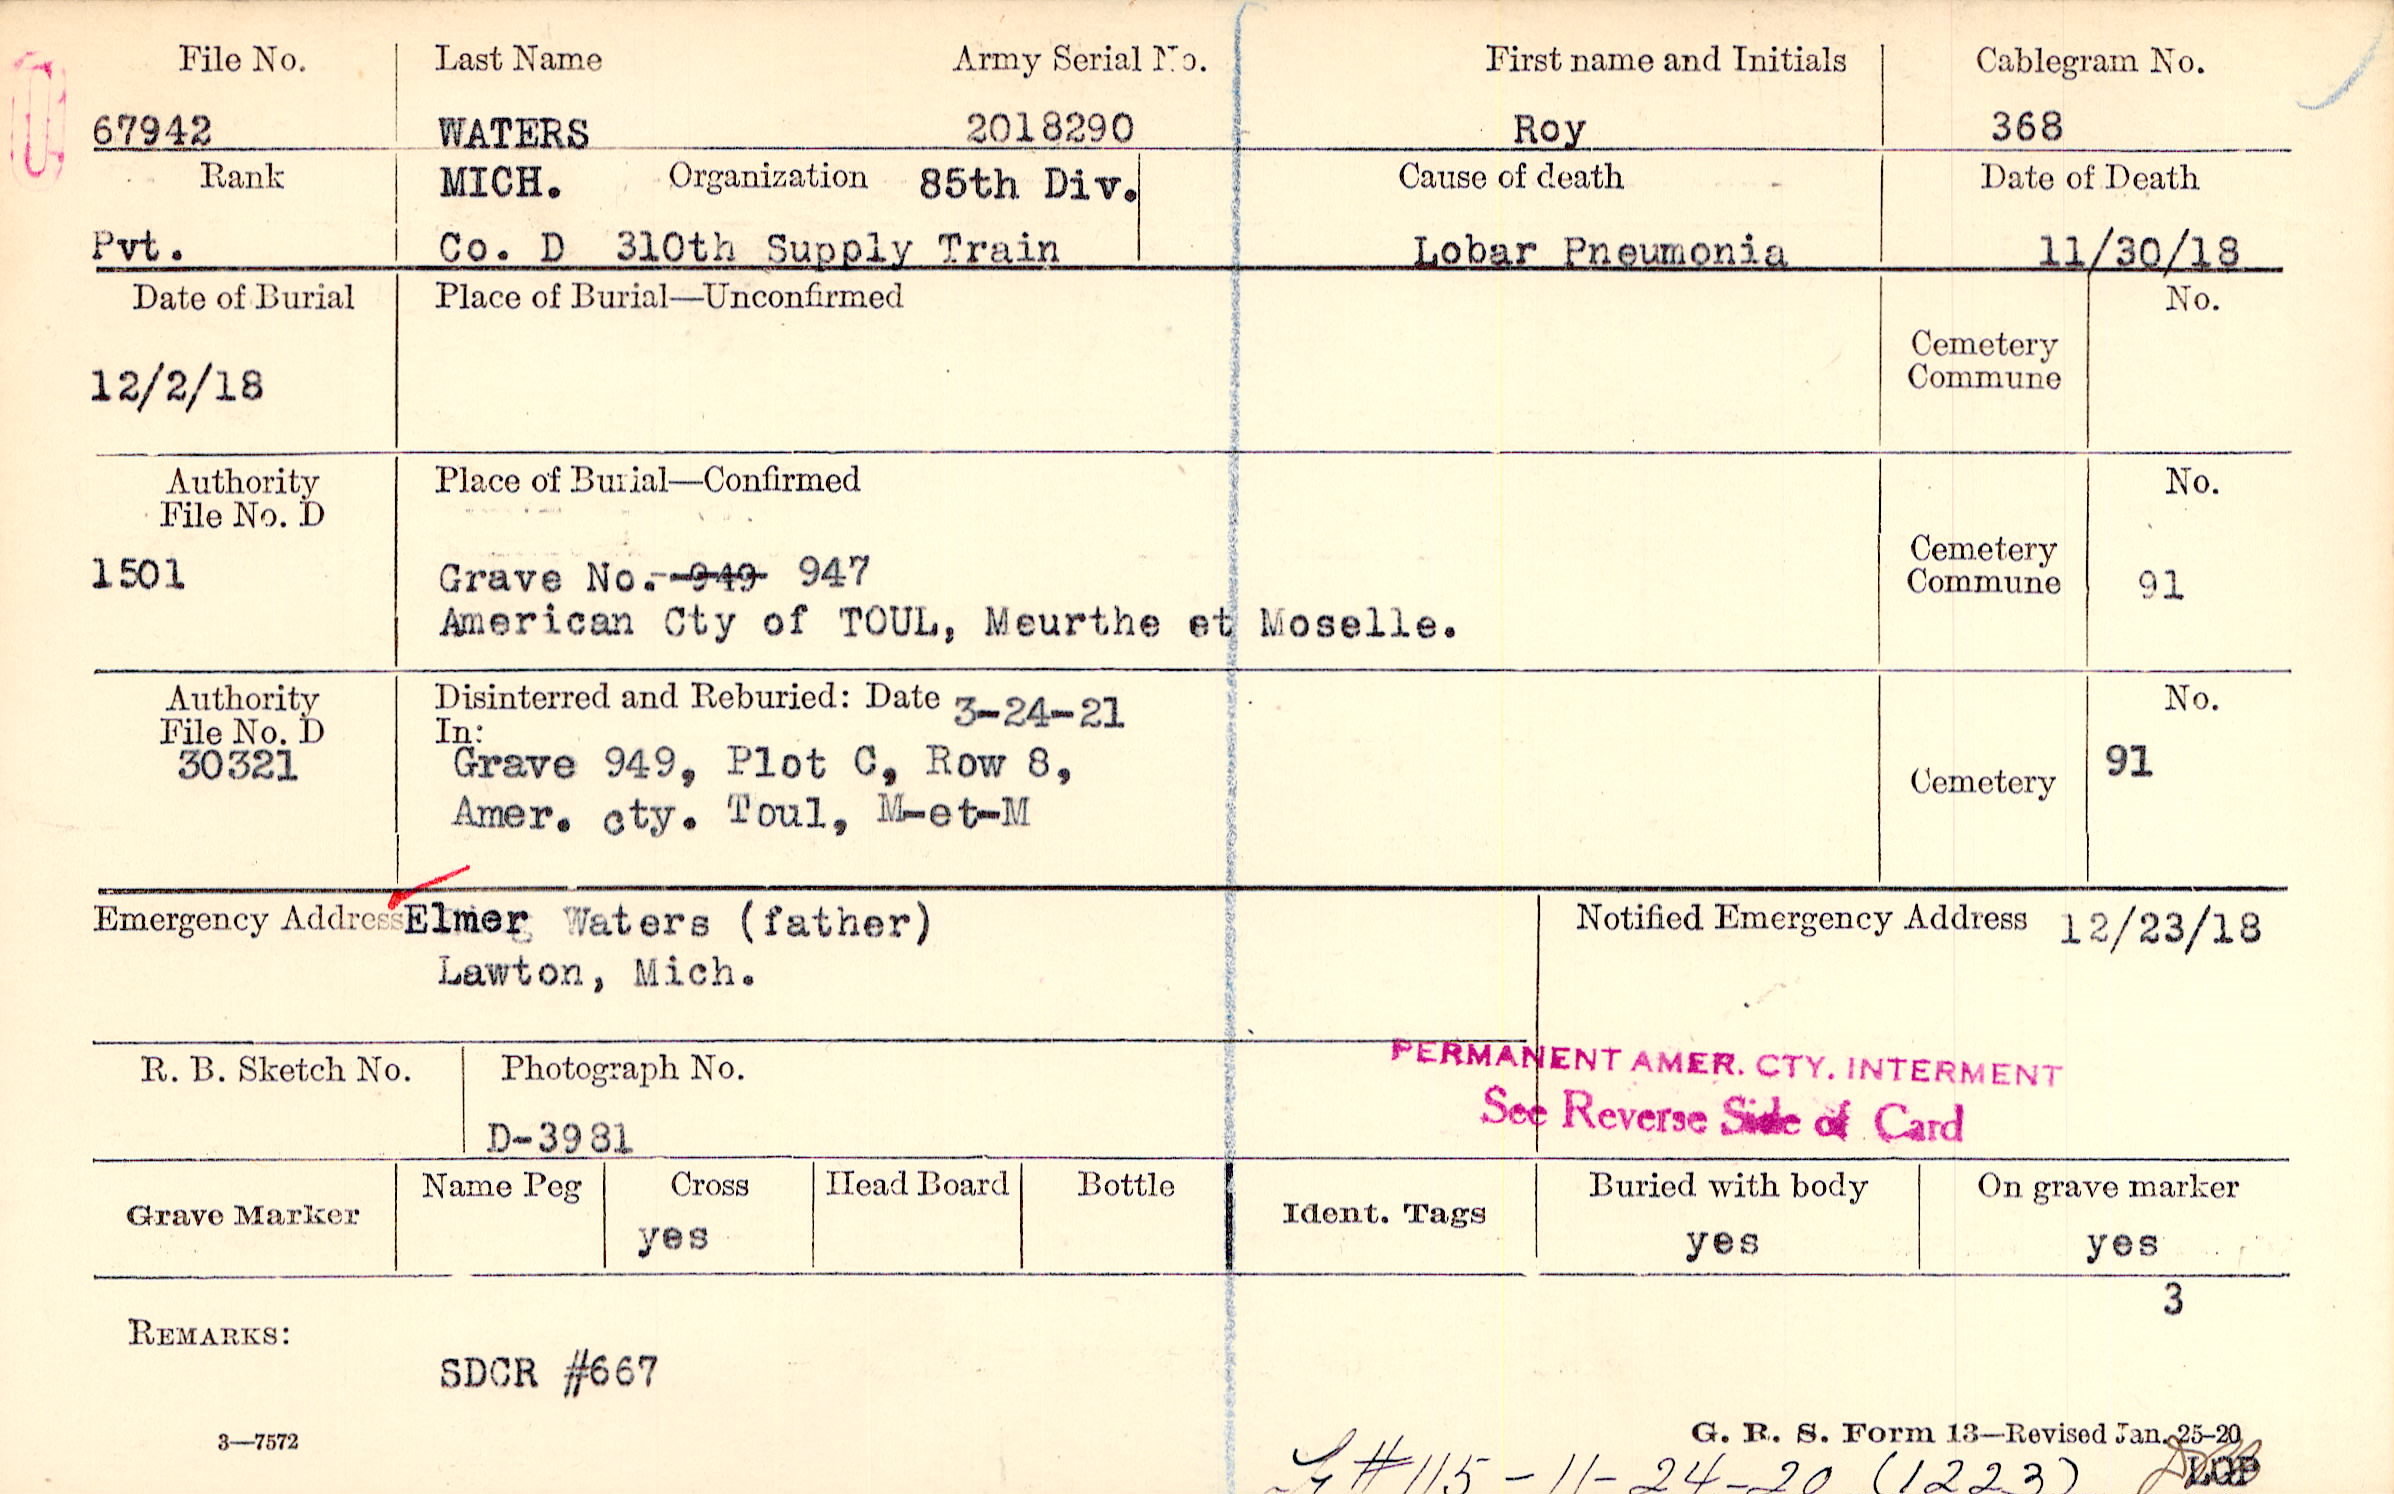 File No. Last Name Army Serial No. First name and Initials Cablegram No.
67942 WATERS 2018290 Roy 368
Rank MICH. Organization 85th Div. Cause of death Date of Death
Pvt. Co. D 310th Supply Train Lobar Pneumonia 11/30/18
Date of Burial Place of Burial—Unconfirmed No.
Cemetery
Commune
12/2/18
Authority Place of Burial—Confirmed No.
File No. D
Cemetery
1501 Grave No. 949 947 Commune 91
American Cty of TOUL, Meurthe et Moselle.
Authority Disinterred and Reburied: Date 3-24-21 No.
File No. D In:
30321 Grave 949, Plot C, Row 8, Cemetery 91
Amer. cty. Toul, M-et-M
Emergency Address Elmer Waters (father) Notified Emergency Address 12/23/18
Lawton, Mich.
R. B. Sketch No. Photograph No. PERMANENT AMER. CTY. INTERMENT
See Reverse Side of Card
D-3981
Grave Marker Name Peg Cross Head Board Bottle Ident. Tags Buried with body On grave marker
yes yes yes
3
REMARKS:
SDCR #667
3—7572 G. R. S. Form 13—Revised Jan. 25-20
#115-11-24-20 (1223)